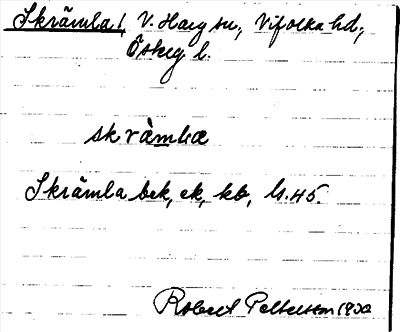 Skrämla!, V. Harg sn, Vifolka hd,
Österg l.
skràmla
Skrämla bek, ek, kb, ls. 45.
Robert Pettersson 1930